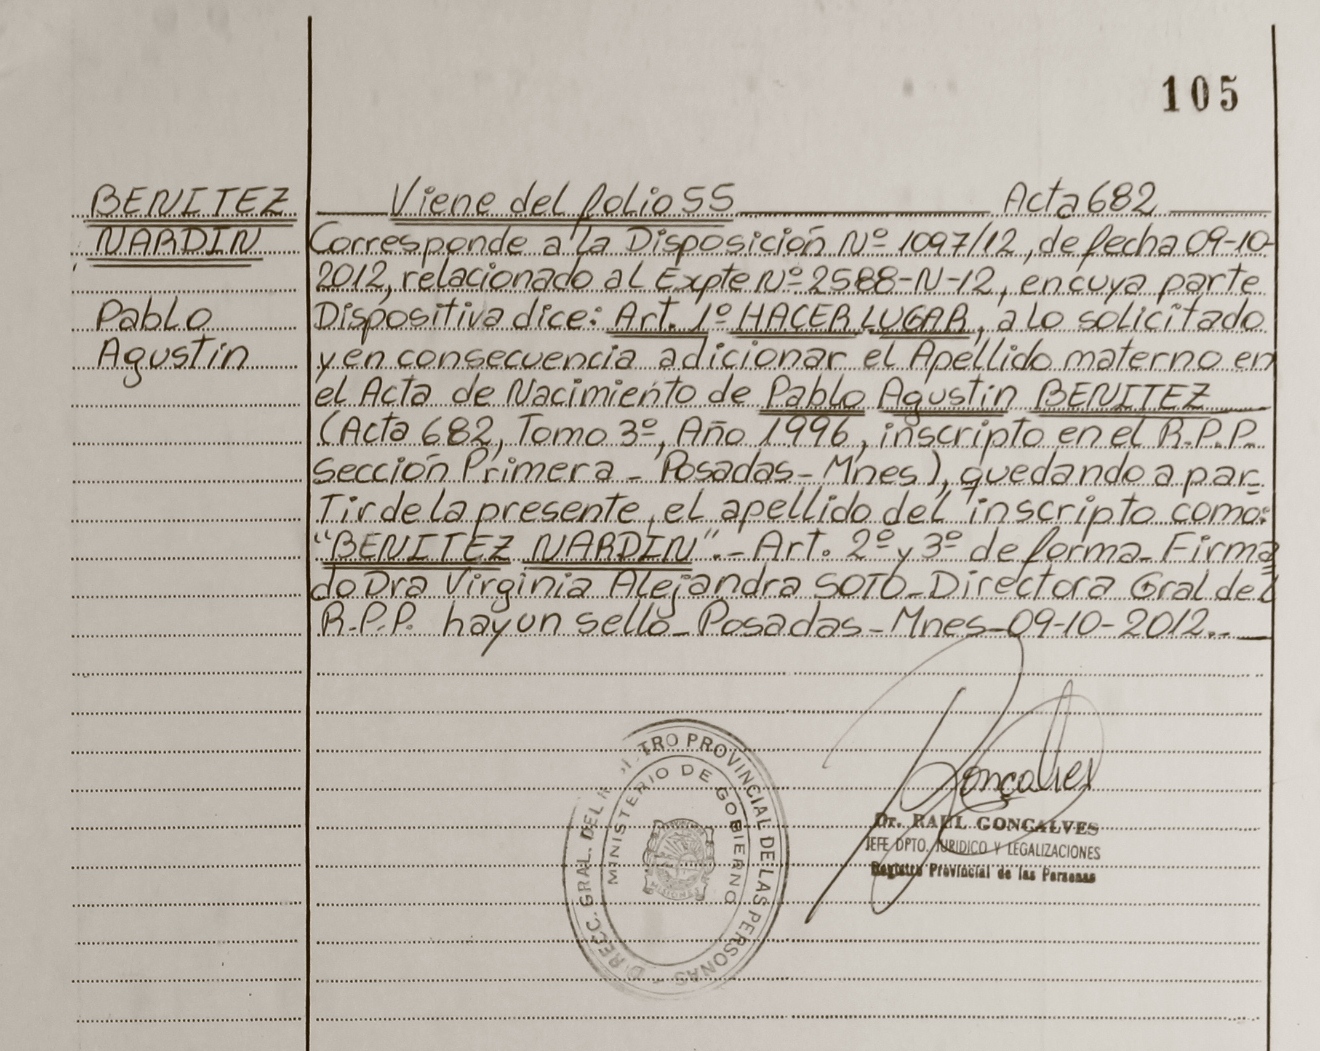 105
BENITEZ
NARDIN
Pablo
Agustin
Viene del folio 55 Acta 682
Corresponde a la Disposición Nº 1097/12, de fecha 09-10-
2012, relacionado al Expte Nº 2588-N-12, en cuya parte
Dispositiva dice: Art. 1º HACER LUGAR, a lo solicitado
y en consecuencia adicionar el Apellido materno en
el Acta de Nacimiento de Pablo Agustin BENITEZ
(Acta 682, Tomo 3º, Año 1996, inscripto en el R.P.P.
Sección Primera - Posadas - Mnes), quedando a par-
Tir de la presente, el apellido del inscripto como:
"BENITEZ NARDIN".- Art. 2º y 3º de forma- Firma
do Dra Virginia Alejandra SOTO- Directora Gral del
R.P.P. hay un sello- Posadas - Mnes- 09-10-2012.-
DIRECC. GRAL. DEL REGISTRO PROVINCIAL DE LAS PERSONAS -
MINISTERIO DE GOBIERNO
MISIONES
Goncalves
Dr. RAUL GONCALVES
JEFE DPTO. JURIDICO Y LEGALIZACIONES
Registro Provincial de las Personas